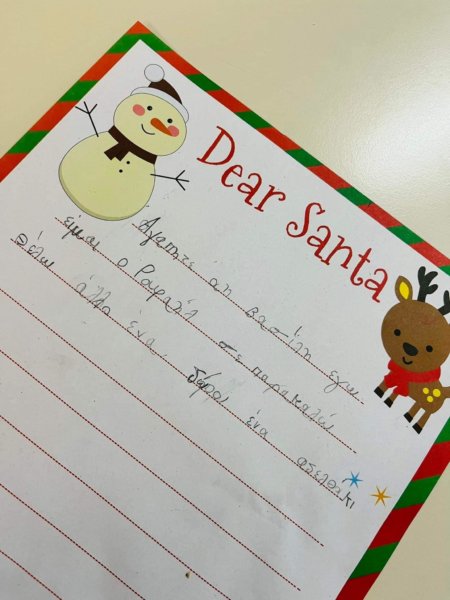 Dear Santa
Αγαπητέ άη Βασίλη εγω
είμαι ο Ραφαήλ σε παρακαλώ
θέλω άλλο ένα δώρο ένα αδελφάκι